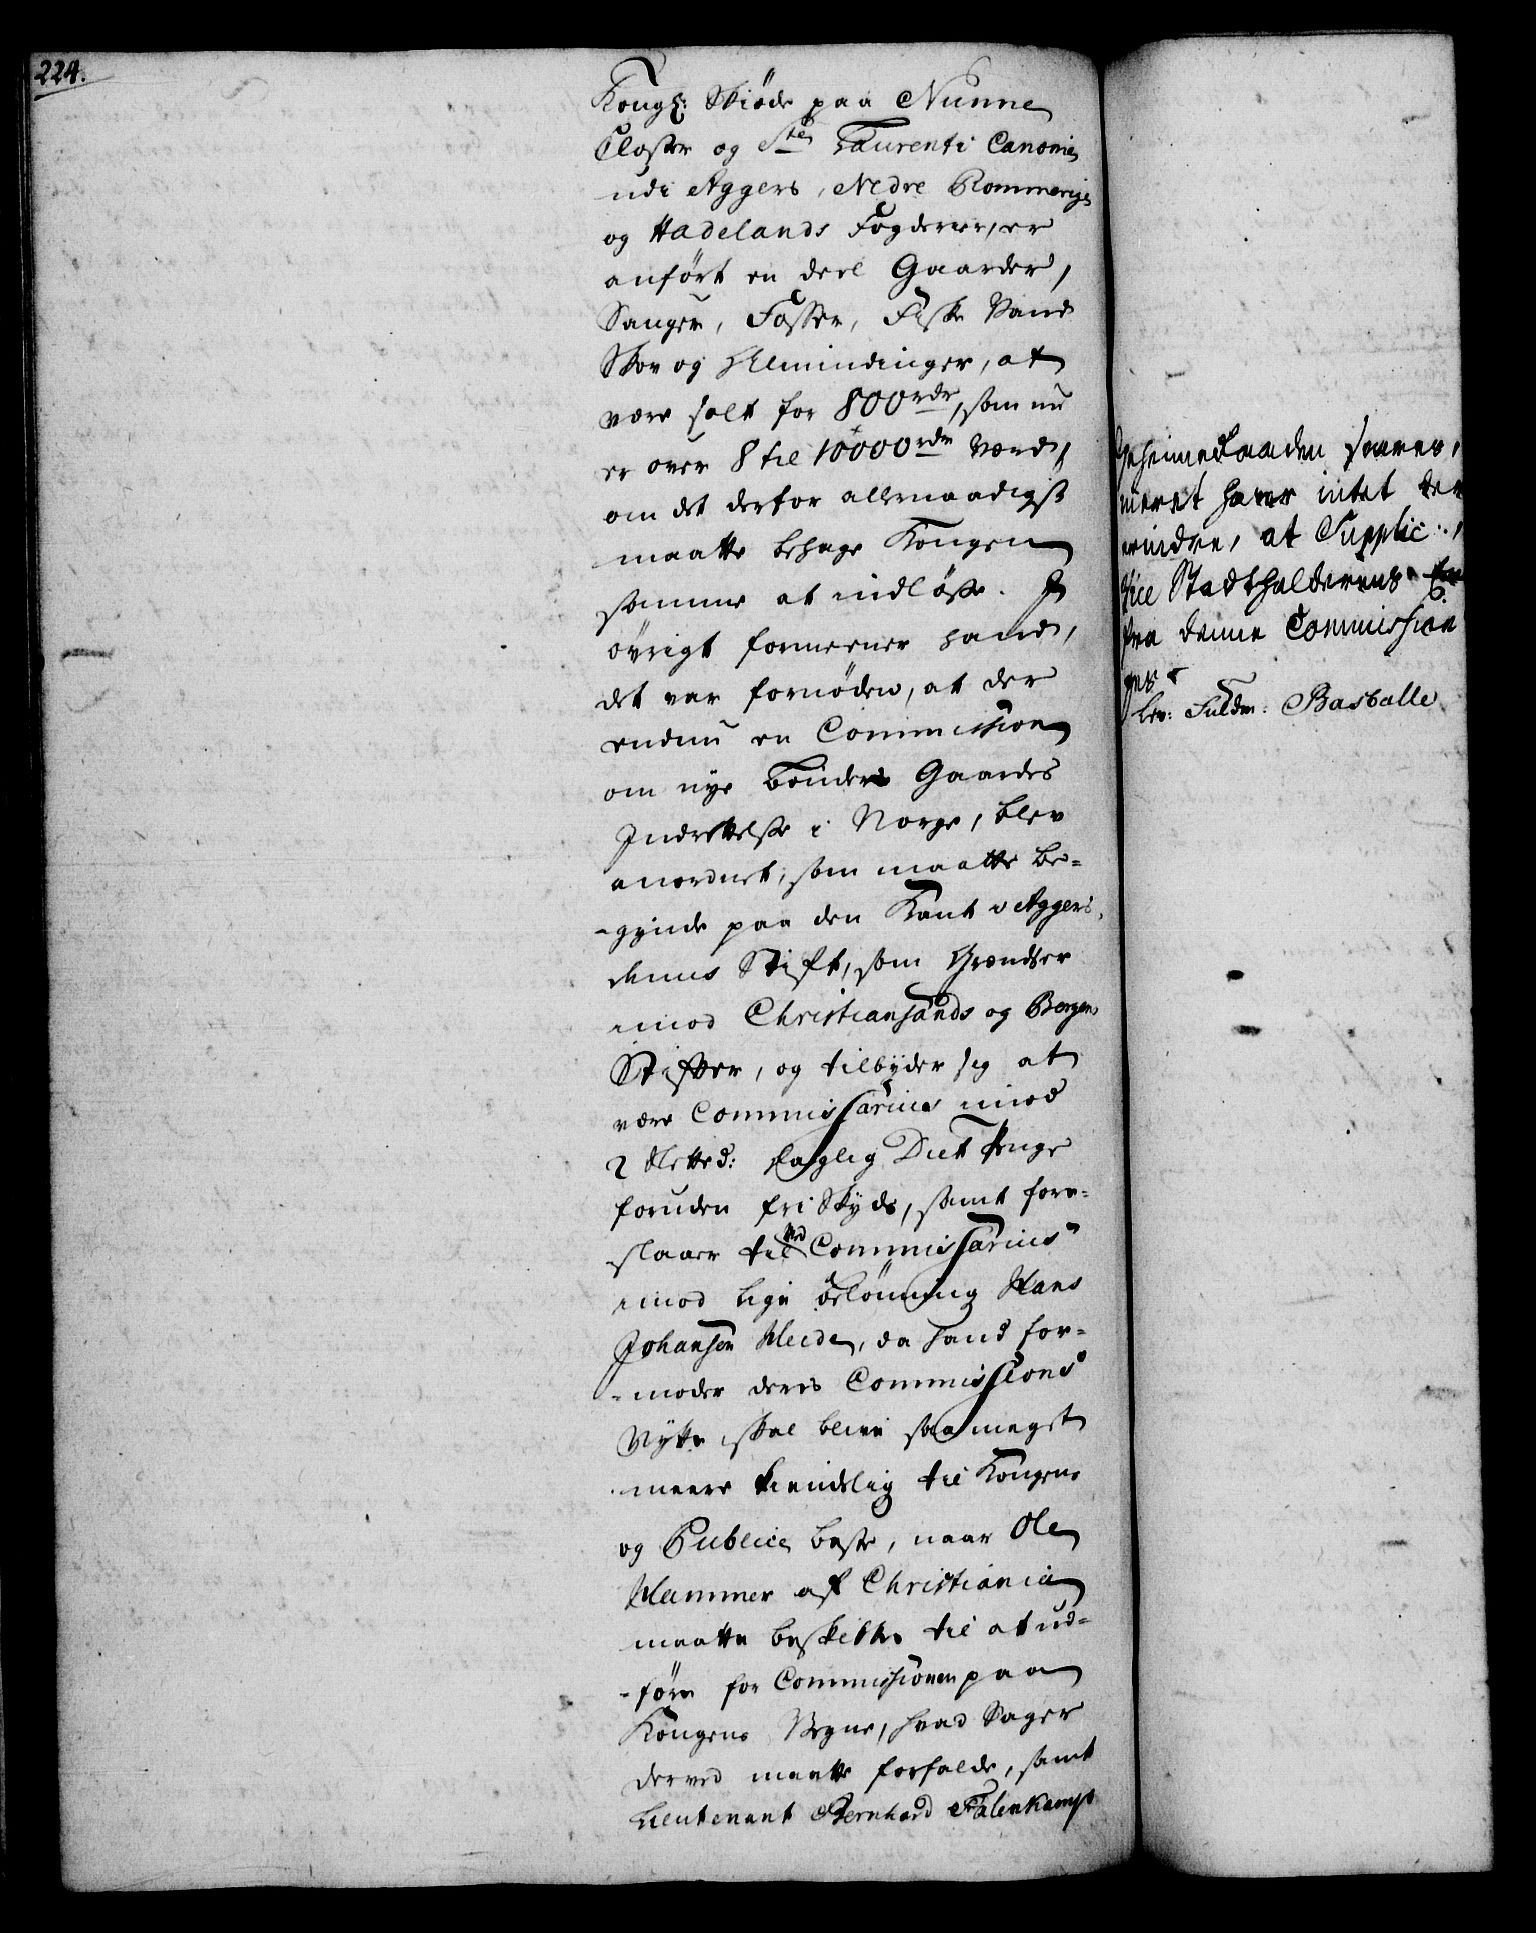 224.
Kongl: Skiöde paa Nunne
Closter og Ste Laurenti Canonie
udi Aggers, Nedre Rommerige
og Hadelands Fogderier, er
anfört en deel Gaarder,
Sauger, Fosser, Fiske Vand
Skov og Almindinger, at
være solt for 800 rdr, som nu
er over 8 til 10000 rdr værd,
om det derfor allernaadigst
maatte behage Kongen
samme at indlöse. I
övrigt formeener hand,
det var fornöden, at der
endnu en Commission
om nye Bönder Gaardes
Indrettelse i Norge, blev
anordnet, som maatte be-
-gynde paa den Kant i Aggers,
huus Stift, som Grændser
imod Christiansands og Bergens
Stifter, og tilbyder sig at
være Commissarius imod
2 Sletted: daglig Diet Penge
foruden fri Skyds, samt fore-
slaaer til Med Commissarius
imod lige belönning Hans
Johansen Heide, da hand for-
-moder deres Commissions
Nytte skal blive saa meget
meere kiendelig til Kongens
og Publici beste, naar Ole
Hammer af Christiania
maatte beskikkes til at ud-
-före for Commissionen paa
Kongens Vegne, hvad Sager
derved maatte forfalde, samt
Lieutenant Bernhard Falenkamp
Geheime Raaden svarer,
meret haver intet der
erindre, at Supplic:,
Vice Stadtholderens
fra denne Commission
ges
Lev: Fuldm: Basballe